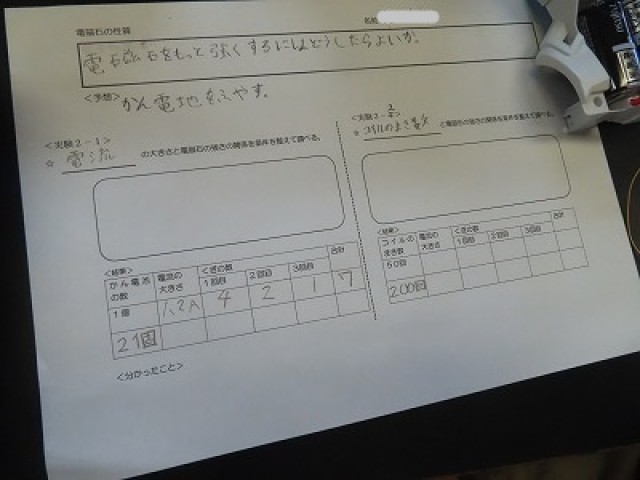 電磁石の性質
名前
電石磁石をもっと強くするにはどうしたらよいか。
<予想> かん電地をふやす。
<実験2-1>
☆ 電流 の大きさと電磁石の強さの関係を条件を整えて調べる。
<結果>
かん電池の数 電流の大きさ くぎの数 1回目 2回目 3回目 合計
1個 1.2A 4 2 1 7
2個
<分かったこと>
<実験2-2>
☆ コイルのまき数 と電磁石の強さの関係を条件を整えて調べる。
<結果>
コイルのまき数 電流の大きさ くぎの数 1回目 2回目 3回目 合計
50回
200回